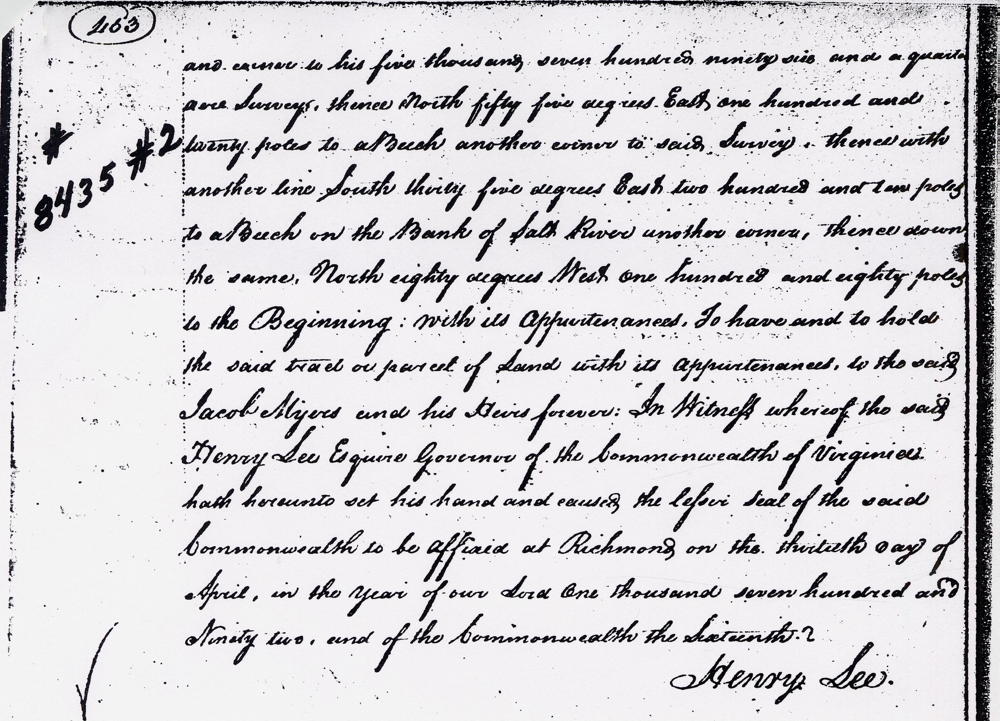 463
and corner to his five thousand, seven hundred ninety six and a quarter
acre Survey, thence North fifty five degrees East, one hundred and
# 8435 #2
twenty poles to a Beech another corner to said Survey, thence with
another line South thirty five degrees East two hundred and ten poles
to a Beech on the Bank of Salt River another corner, thence down
the same, North eighty degrees West one hundred and eighty poles
to the Beginning: with its Appurtenances. To have and to hold
the said tract or parcel of Land with its Appurtenances, to the said
Jacob Myers and his Heirs forever: In Witness whereof the said
Henry Lee Esquire Governor of the Commonwealth of Virginia
hath hereunto set his hand and caused the lesser Seal of the said
Commonwealth to be affixed at Richmond, on the thirtieth day of
April, in the Year of our Lord One thousand seven hundred and
Ninety two, and of the Commonwealth the Sixteenth
Henry Lee.